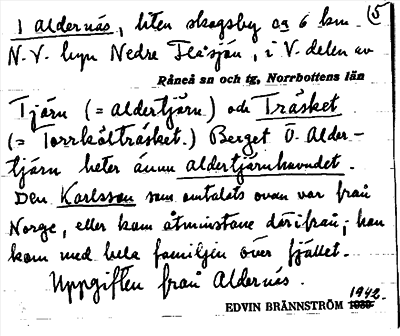 I Aldernäs, liten skogsby ca 6 km (5
N.V. byn Nedre Flåsjön, i V. delen av
Råneå sn och tg, Norrbottens län
Tjärn (= Aldertjärn) och Träsket
(= Torrkölträsket.) Berget Ö. Alder-
tjärn heter ännu aldertjärnhavudet.
Den Karlsson som omtalats ovan var från
Norge, eller kom åtminstone därifrån, han
kom med hela familjen över fjället.
Uppgiften från Aldernäs.
EDVIN BRÄNNSTRÖM 1939 1942.